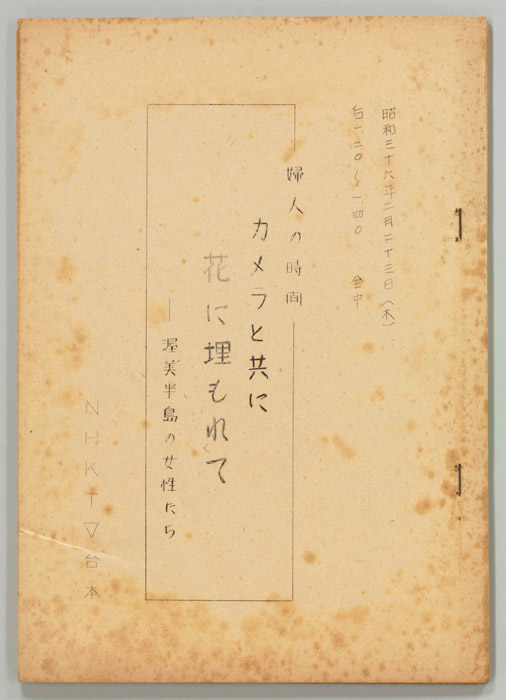 昭和三十六年二月二十三日(木)
后一、二〇〜一、四〇 全中
婦人の時間
カメラと共に
花に埋もれて
—渥美半島の女性たち
NHKTV台本